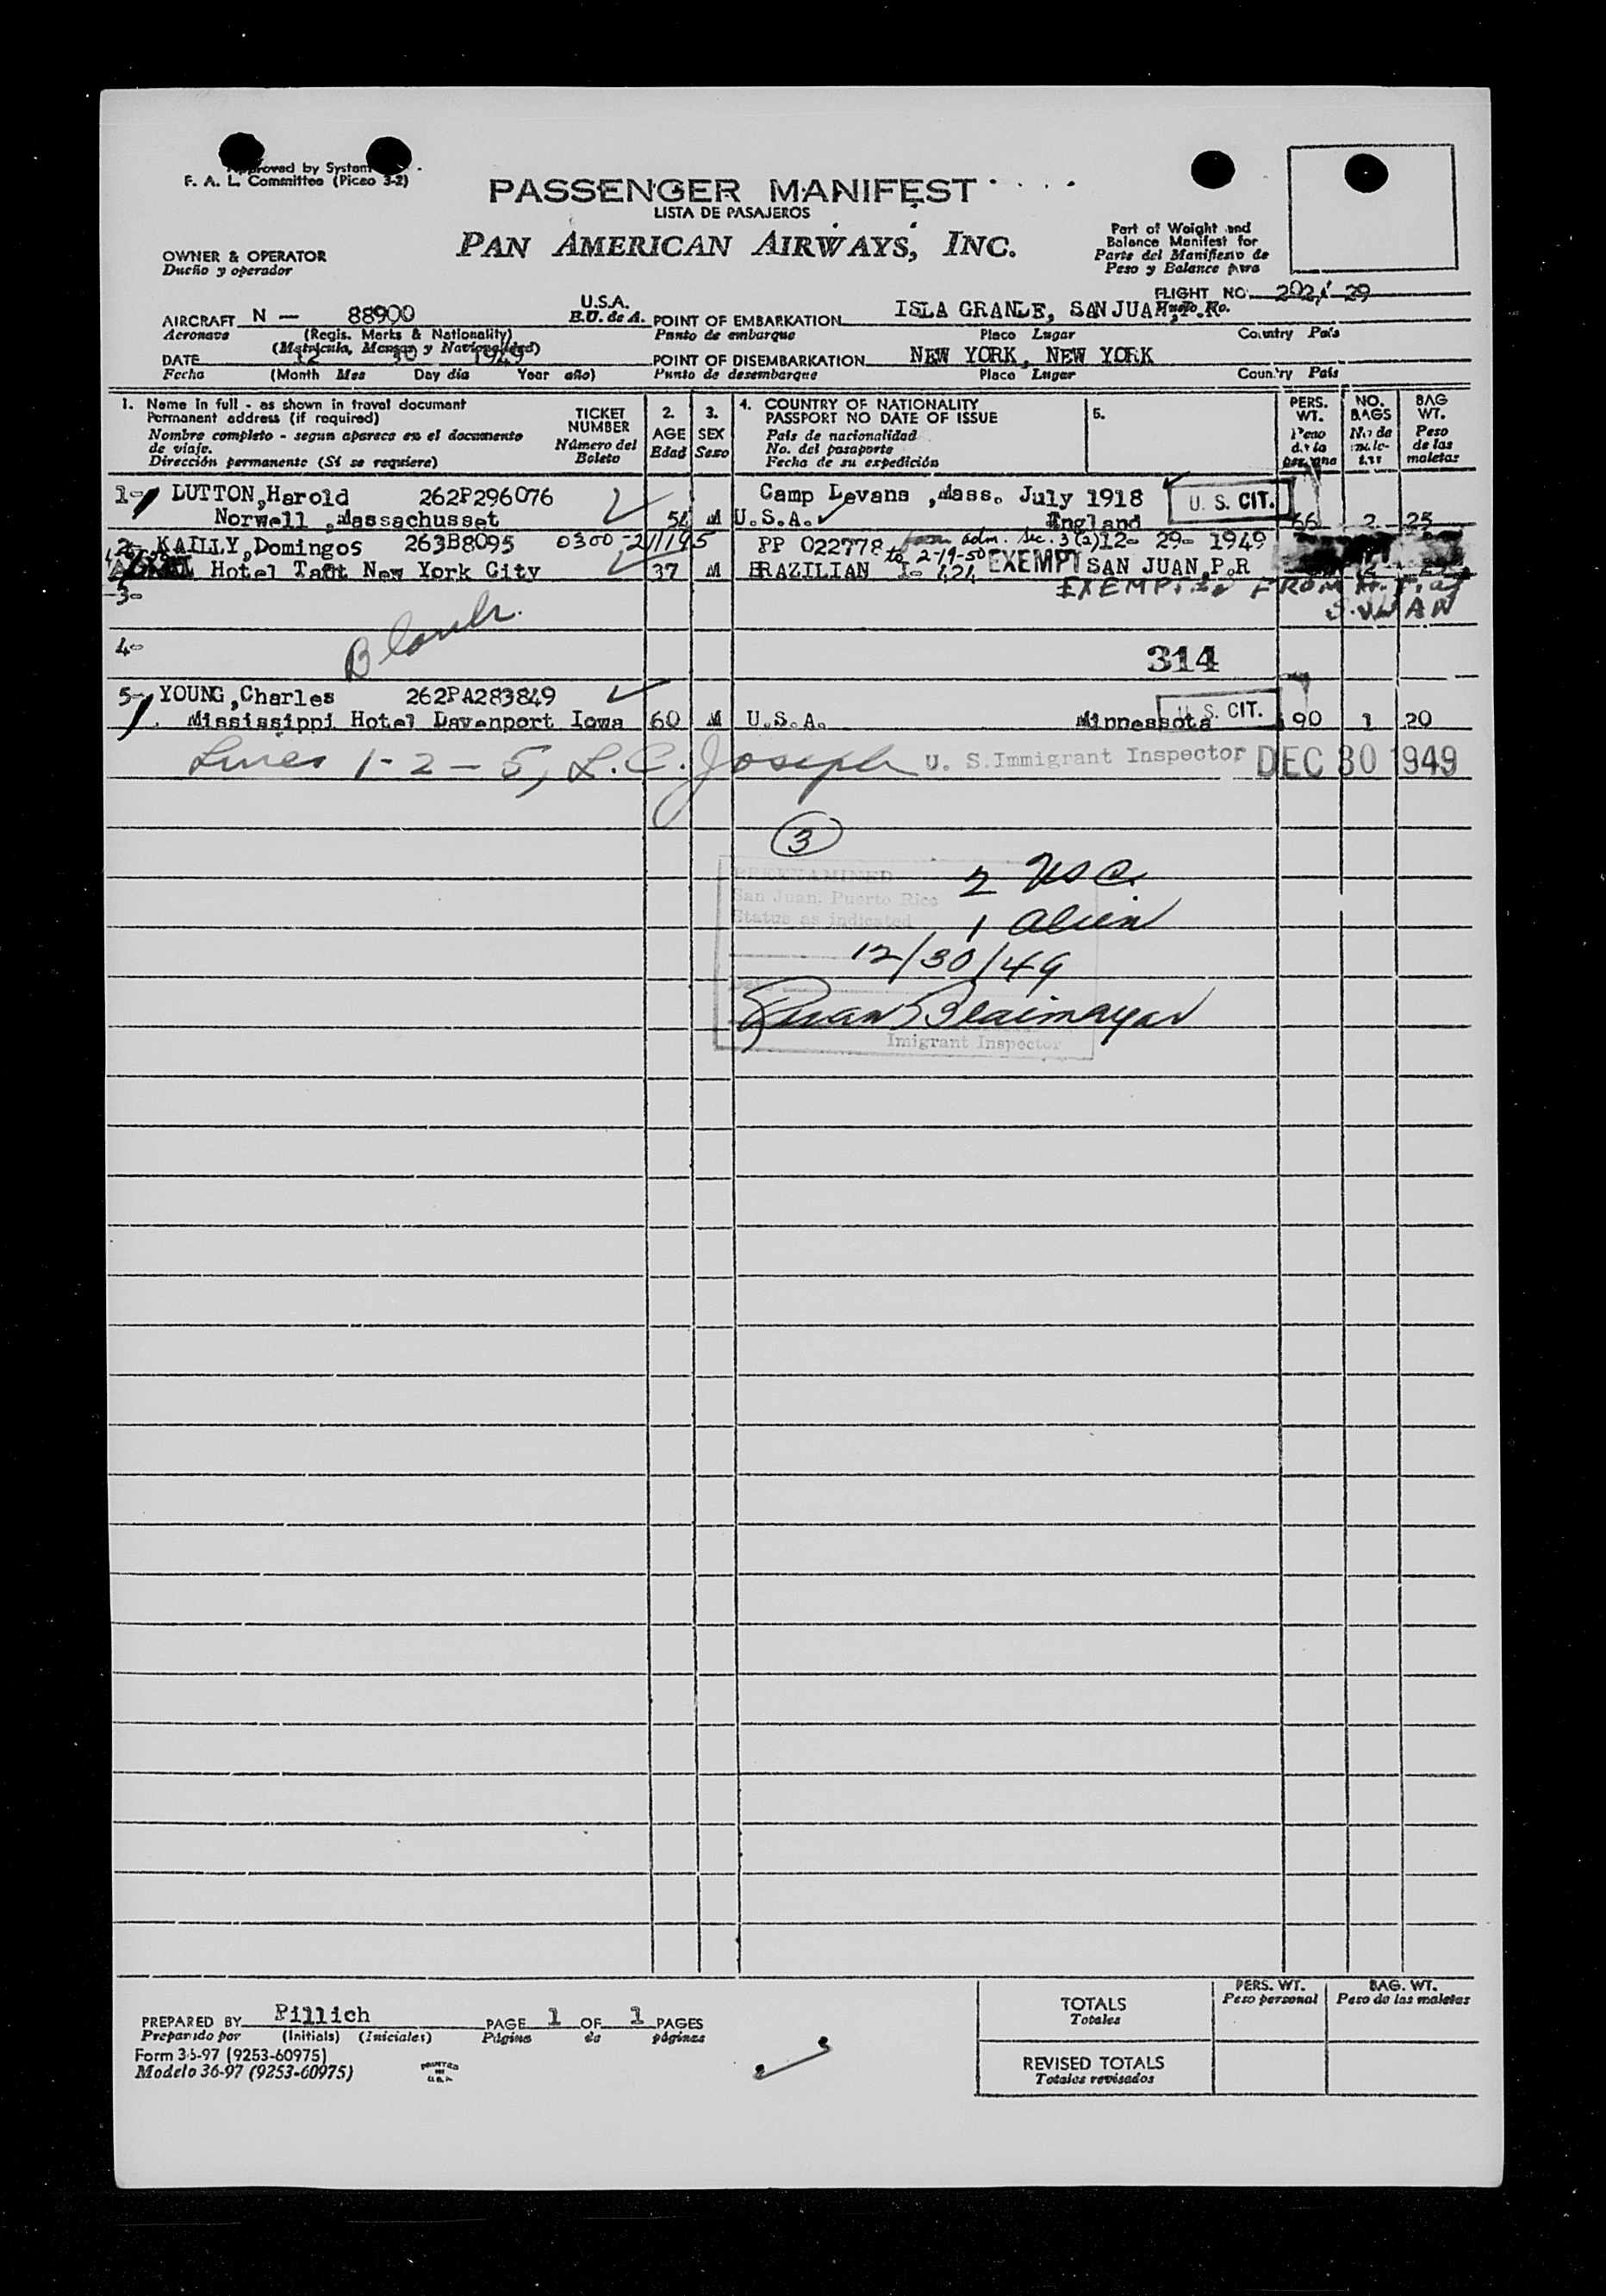 Approved by System
F. A. L. Committee (Picao 3-2)
PASSENGER MANIFEST
LISTA DE PASAJEROS
PAN AMERICAN AIRWAYS, INC.
Part of Weight and
Balance Manifest for
Parte del Manifiesto de
Peso y Balance para
OWNER & OPERATOR
Dueño y operador
FLIGHT NO. 202/ 29
AIRCRAFT N — 88900 U.S.A. POINT OF EMBARKATION ISLA GRANDE, SAN JUAN, P. R.
Aeronave (Regis. Marks & Nationality) E.U. de A. Punto de embarque Place Lugar Country País
(Matrícula, Marcas y Nacionalidad)
DATE 12 30 1949 POINT OF DISEMBARKATION NEW YORK, NEW YORK
Fecha (Month Mes Day día Year año) Punto de desembarque Place Lugar Country País
1. Name in full - as shown in travel document
Permanent address (if required)
Nombre completo - segun aparece en el documento
de viaje.
Dirección permanente (Si se requiere)
TICKET
NUMBER
Número del
Boleto
2.
AGE
Edad
3.
SEX
Sexo
4. COUNTRY OF NATIONALITY
PASSPORT NO DATE OF ISSUE
País de nacionalidad
No. del pasaporte
Fecha de su expedición
5.
PERS.
WT.
Peso
de la
persona
NO.
BAGS
No de
male-
tas
BAG
WT.
Peso
de las
maletas
1- LUTTON,Harold 262P296076 Camp Levans ,Mass. July 1918 U. S. CIT.
Norwell ,Massachusset 54 M U.S.A. England 166 2 25
2- KAILLY,Domingos 263B8095 0300-211195 PP 022778 adm. Sec. 3(2) 12- 29- 1949
to 2-19-50
Hotel Taft New York City 37 M BRAZILIAN I- 424 EXEMPT SAN JUAN,P.R
3- EXEMPTED FROM
4- 314
5- YOUNG,Charles 262PA283849
Mississippi Hotel Davenport Iowa 60 M U.S.A. Minnessota U. S. CIT. 190 1 20
Lines 1-2-5, L.C. Joseph U. S. Immigrant Inspector DEC 30 1949
3
PREEXAMINED
San Juan, Puerto Rico
Status as indicated
2 USC.
1 alien
12/30/49
Date
Imigrant Inspector
TOTALS
Totales
PERS. WT.
Peso personal
BAG. WT.
Peso de las maletas
REVISED TOTALS
Totales revisados
PREPARED BY Pillich PAGE 1 OF 1 PAGES
Preparado por (Initials) (Iniciales) Página de páginas
Form 36-97 (9253-60975)
Modelo 36-97 (9253-60975)
PRINTED
IN
U.S.A.